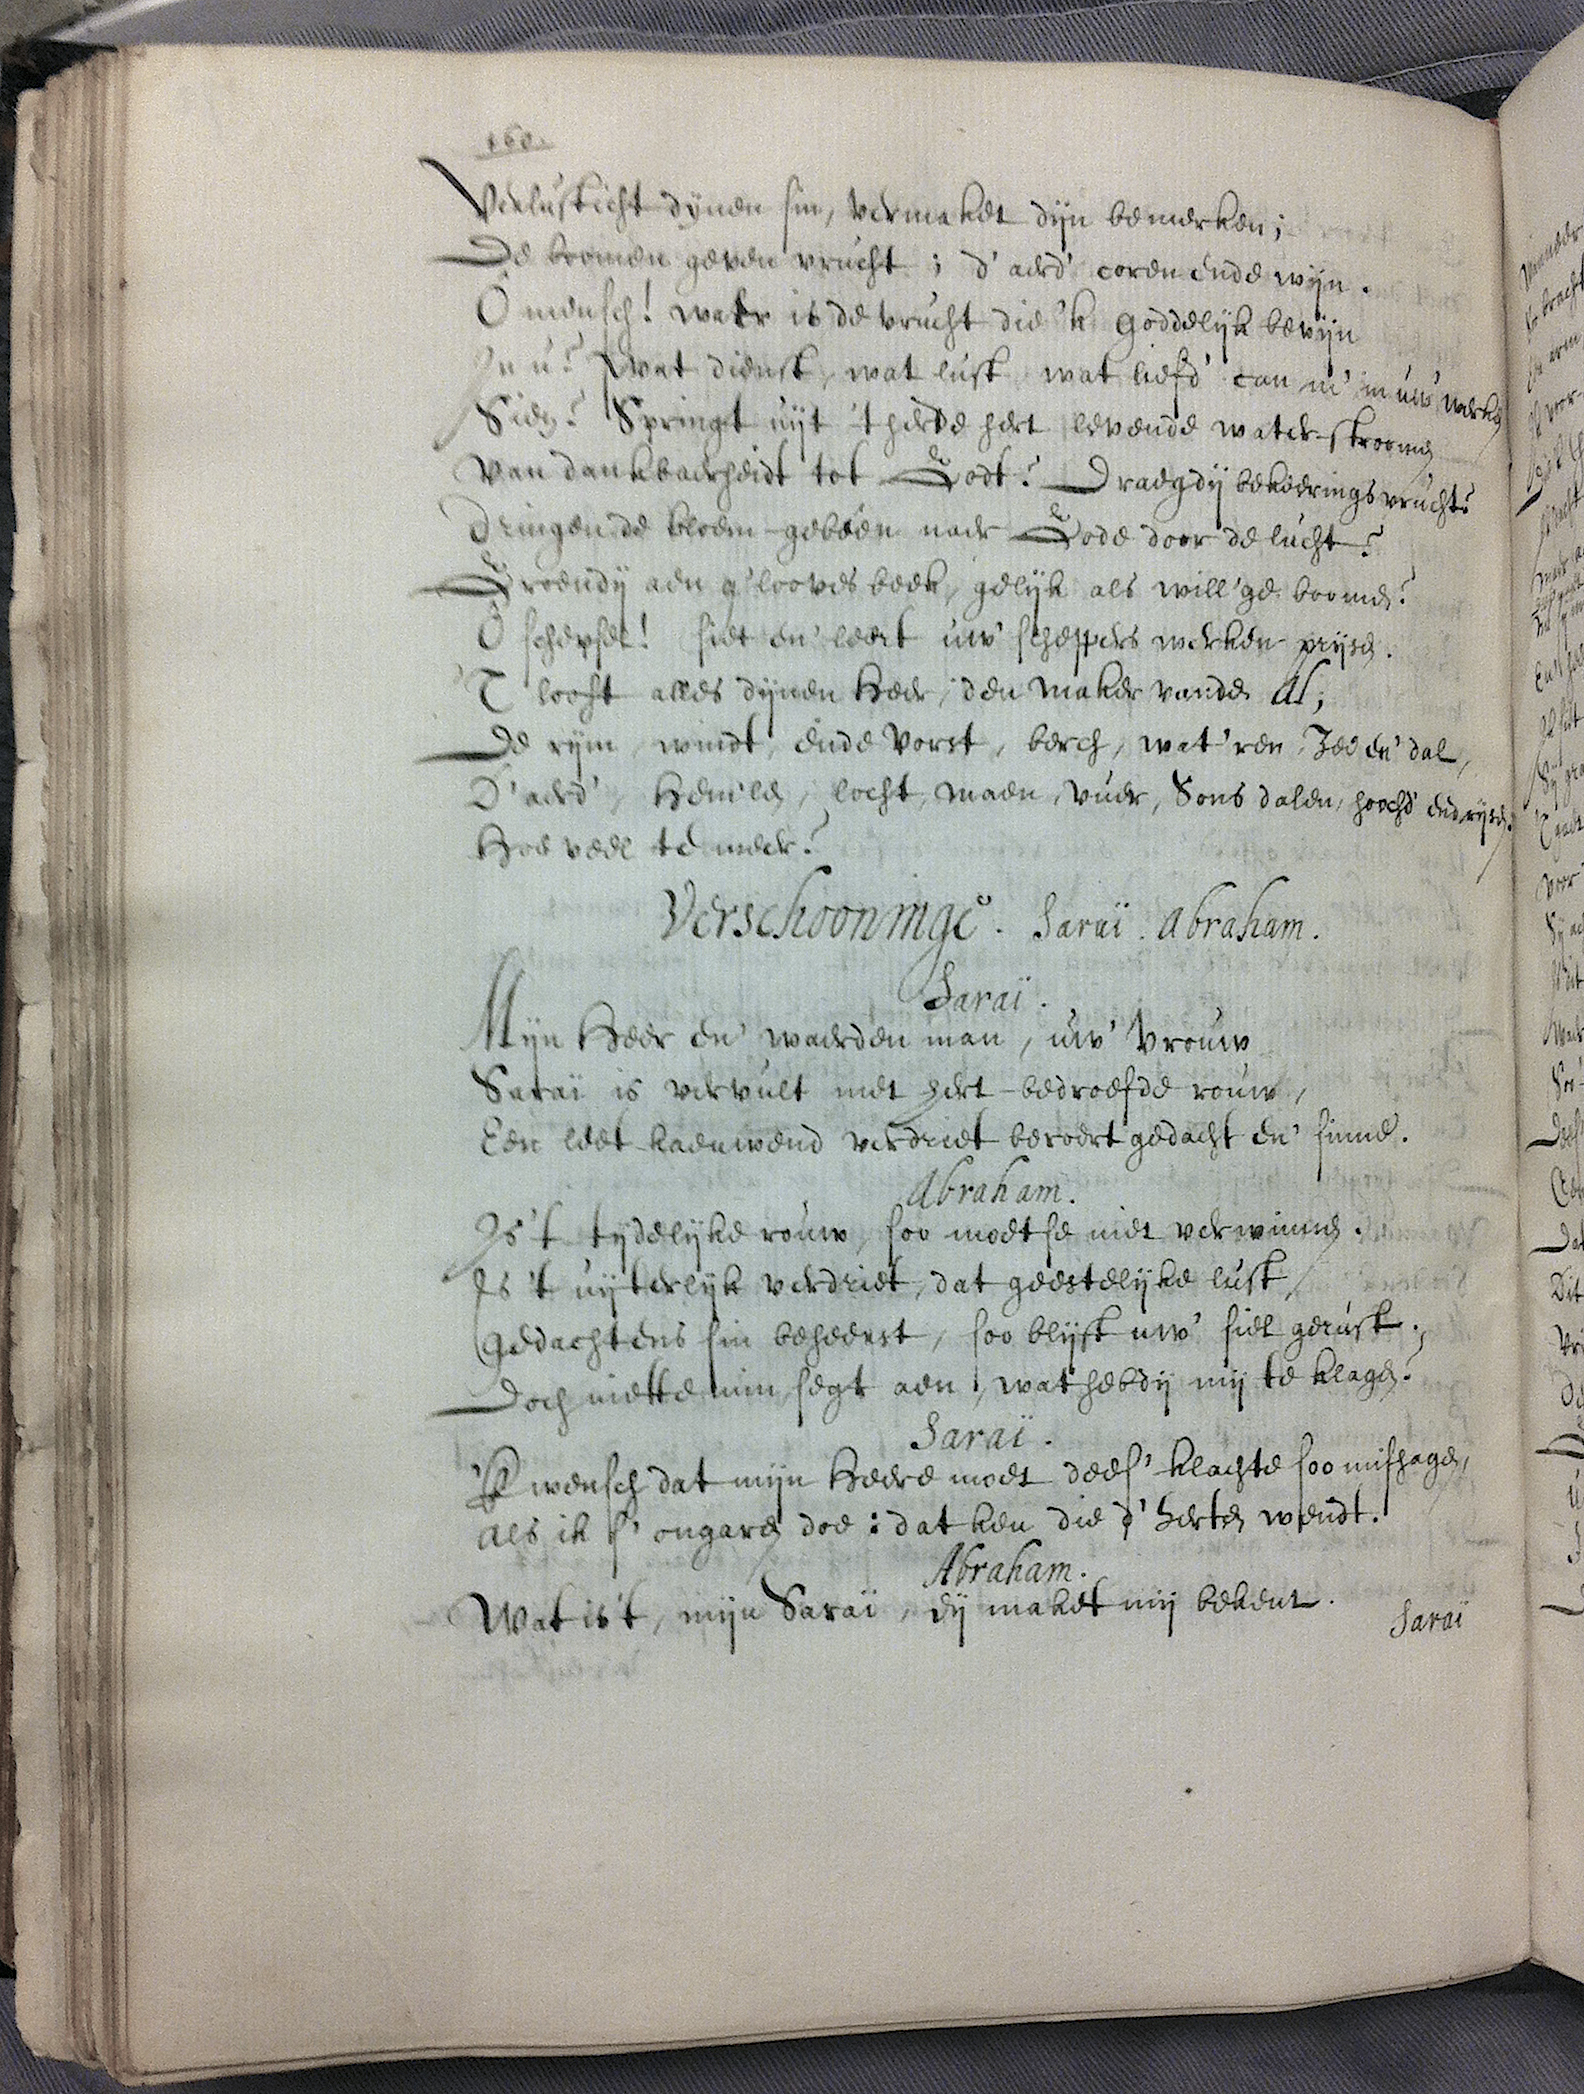 160.
Verlusticht dijnen sin, vermaket dijn bemerken;
De boomen geven vrucht; d'aerd' coren ende wijn.
O mensch! waer is de vrucht die 'k goddelijk bevijn
In u? wat dienst, wat lust, wat liefd' can m' in uw' werken
Sien? Springt uijt 't herde hert levende water-stroomen
Van dankbaerheidt tot Godt? Draegdij bekeerings vrucht?
Dringen de bloem-gebeen naer Gode door de lucht?
Groendij aen g'looves beek, gelijk als will'ge boomen?
O schepsel! siet en' leert uw' scheppers werken prijsen.
'T looft alles dijnen Heer, den maker vander Al;
De rijm, windt, ende vorst, berch, wat'ren, Zee en' dal,
D'aerd', Hem'len, locht, maen, vuer, Sons dalen, hoochd' end rijsen.
Hoe veel te meer?
Verschooninge. Saraï. Abraham.
Saraï.
Mijn Heer en' waerden man, uw' Vrouw
Saraï is vervult met hert-bedroefde rouw,
Een leet-kaeuwend verdriet beroert gedacht en' sinne.
Abraham.
Is 't tijdelijke rouw, soo moetse niet verwinnen.
Is 't uijterlijk verdriet, dat geestelijke lust,
Gedachtens sin beheerst, soo blijft uw' siel gerust.
Doch niettemin, segt aen, wat hebdij mij te klagen?
Saraï.
'K wensch dat mijn Heere moet dees' klachte soo mishagen,
Als ik s' ongaren doe: dat ken die d' herten wendt.
Abraham.
Wat is 't, mijn Saraï, dij maket mij bekent.
Saraï